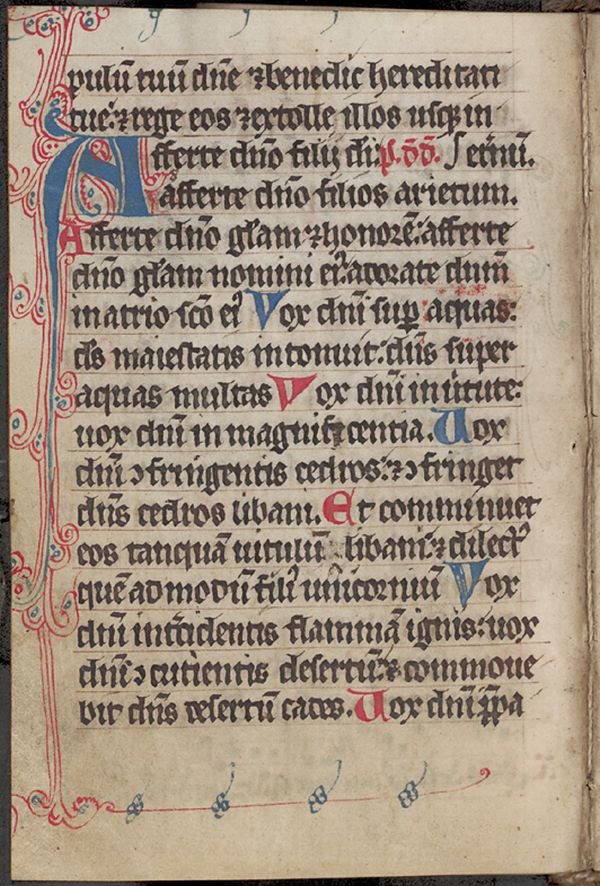 pulū tuū dn̄e ⁊ benedic hereditati
tue: ⁊ rege eos ⁊ extolle illos usq̄ in
Afferte dn̄o filij di: p̄. dd̄. Seruū.
afferte dn̄o filios arietum.
Afferte dn̄o gl̄am ⁊ honorē: afferte
dn̄o gl̄am nomini ei᷒: adorate dn̄m
in atrio sc̄o ei᷒ Vox dn̄i sup̄ aquas:
ds̄ maiestatis intonuit: dn̄s super
aquas multas Vox dn̄i in uirtute:
uox dn̄i in magnificentia. Uox
dn̄i ꝯfringentis cedros: ⁊ ꝯfringet
dn̄s cedros libani. Et comminuet
eos tanquā uitulū libani: ⁊ dilect᷒
quēadmodū fili᷒ unicorniū Vox
dn̄i int̄cidentis flammā ignis: uox
dn̄i ꝯcutientis desertū: ⁊ commoue
bit dn̄s desertū cades. Uox dn̄i p̄pa